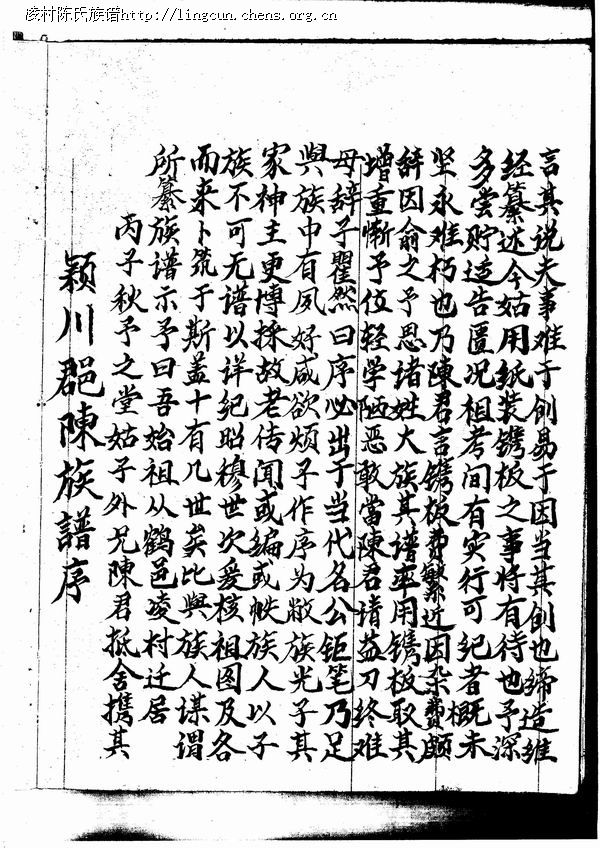 凌村陈氏族谱http://lingcun.chens.org.cn
颖川郡陳族譜序
丙子秋予之堂姑子外兄陳君抵舍携其
所纂族谱示予曰吾始祖从鹤邑凌村迁居
而来卜筑于斯盖十有几世矣比與族人谋谓
族不可无谱以详纪昭穆世次爰核祖图及各
家神主更博採故老传闻或编或帙族人以子
與族中有夙好咸欲烦子作序为敝族光子其
毋辞予瞿然曰序必出于当代名公钜笔乃足
增重慚予位轻学陋恶敢當陳君请益刀终难
辞因俞之予思诸姓大族其谱率用镌板取其
坚永难朽也乃陳君言镌板费繁近因杂费頗
多尝贮造告匮况祖考间有实行可纪者概未
经纂述今姑用纸装镌板之事将有待也予深
言其说夫事难于创易于因当其创也缔造维